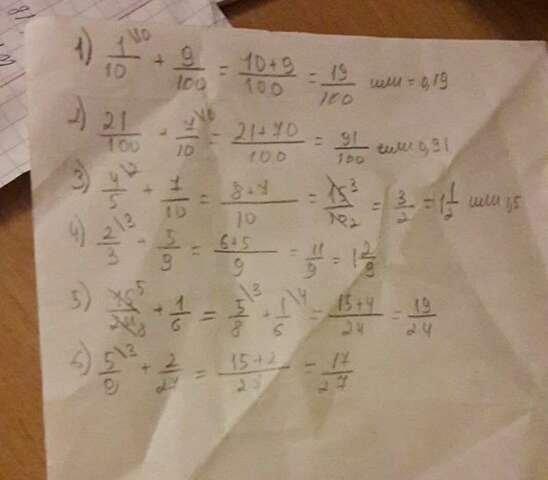 1) 1/10 \10 + 9/100 = 10+9/100 = 19/100 или = 0,19
2) 21/100 + 7/10 \10 = 21+70/100 = 91/100 или 0,91
3) 4/5 \2 + 7/10 = 8+7/10 = 15/10 3/2 = 3/2 = 1 1/2 или 1,5
4) 2/3 \3 + 5/9 = 6+5/9 = 11/9 = 1 2/9
5) 15/24 5/8 + 1/6 = 5/8 \3 + 1/6 \4 = 15+4/24 = 19/24
6) 5/9 \3 + 2/27 = 15+2/27 = 17/27